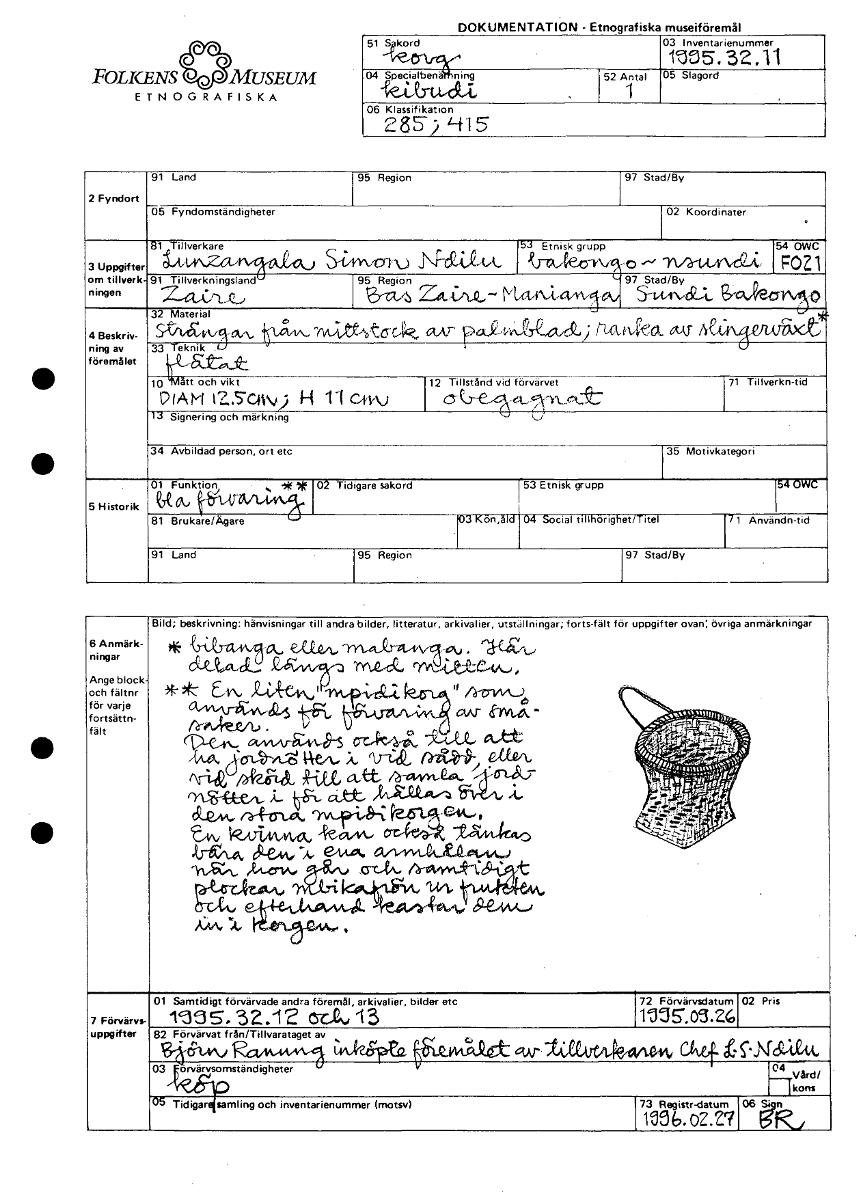 DOKUMENTATION - Etnografiska museiföremål
FOLKENS MUSEUM
ETNOGRAFISKA
51 Sakord
korg
03 Inventarienummer
1995.32.11
04 Specialbenämning
kibudi
52 Antal
1
05 Slagord
06 Klassifikation
285; 415
2 Fyndort
91 Land
95 Region
97 Stad/By
05 Fyndomständigheter
02 Koordinater
3 Uppgifter om tillverk-ningen
81 Tillverkare
Lunzangala Simon Ndilu
53 Etnisk grupp
bakongo - nsundi
54 OWC
FO21
91 Tillverkningsland
Zaire
95 Region
Bas Zaire - Manianga
97 Stad/By
Sundi Bakongo
4 Beskriv-ning av föremålet
32 Material
Strängar från mittstock av palmblad; ranka av slingerväxt*
33 Teknik
flätat
10 Mått och vikt
DIAM 12.5cm; H 11 cm
12 Tillstånd vid förvärvet
obegagnat
71 Tillverkn-tid
13 Signering och märkning
34 Avbildad person, ort etc
35 Motivkategori
5 Historik
01 Funktion
**
bla förvaring
02 Tidigare sakord
53 Etnisk grupp
54 OWC
81 Brukare/Ägare
03 Kön,åld
04 Social tillhörighet/Titel
71 Användn-tid
91 Land
95 Region
97 Stad/By
6 Anmärk-ningar
Ange block- och fältnr för varje fortsättn-fält
Bild; beskrivning: hänvisningar till andra bilder, litteratur, arkivalier, utställningar; forts-fält för uppgifter ovan; övriga anmärkningar
* bibanga eller mabanga. Här
delad längs med mitten.
** En liten "mpidikorg" som
används för förvaring av små-
saker.
Den används också till att
ha jordnötter i vid sådd, eller
vid skörd till att samla jord-
nötter i för att hällas över i
den stora mpidikorgen.
En kvinna kan också tänkas
bära den i ena armhålan
när hon går och samtidigt
plockar mbikafrön ur frukten
och efterhand kastar dem
in i korgen.
7 Förvärvs-uppgifter
01 Samtidigt förvärvade andra föremål, arkivalier, bilder etc
1995.32.12 och 13
72 Förvärvsdatum
1995.09.26
02 Pris
82 Förvärvat från/Tillvarataget av
Björn Ranung inköpte föremålet av tillverkaren Chef L.S. Ndilu
03 Förvärvsomständigheter
köp
04 Vård/kons
05 Tidigare samling och inventarienummer (motsv)
73 Registr-datum
1996.02.27
06 Sign
BR